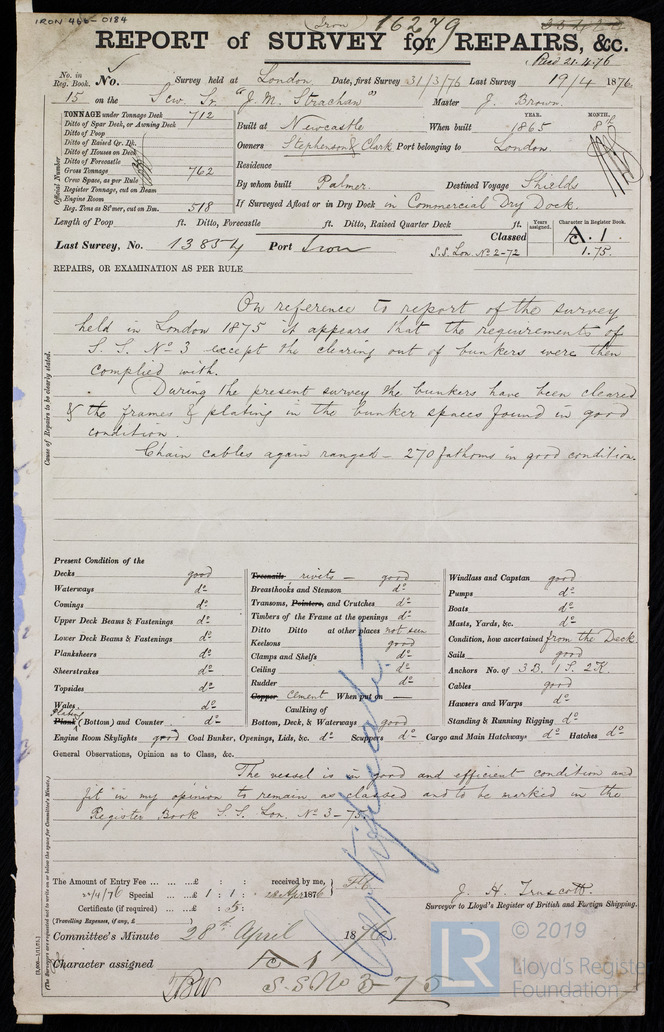 IRON 466-0184
(Iron) 16279
REPORT of SURVEY for REPAIRS, &c.
Recd 21.4.76
No. in Reg. Book. No. Survey held at London Date, first Survey 31/3/76 Last Survey 19/4 1876
15 on the Scw. Sr. "J. M. Strachan" Master J. Brown.
TONNAGE under Tonnage Deck 712
Ditto of Spar Deck, or Awning Deck
Ditto of Poop
Ditto of Raised Qr. Dk.
Ditto of Houses on Deck
Ditto of Forecastle
Gross Tonnage 762
Crew Space, as per Rule
Register Tonnage, cut on Beam
Engine Room
Reg. Tons as St'mer, cut on Bm. 518
Official Number
YEAR. MONTH.
Built at Newcastle When built 1865 8th
Owners Stephenson & Clark Port belonging to London.
Residence
By whom built Palmer. Destined Voyage Shields
If Surveyed Afloat or in Dry Dock in Commercial Dry Dock.
Length of Poop ft. Ditto, Forecastle ft. Ditto, Raised Quarter Deck ft.
Last Survey, No. 13854 Port Iron
Classed Years assigned. Character in Register Book.
A. 1.
S.S. Lon. No. 2-72 1.75.
REPAIRS, OR EXAMINATION AS PER RULE
Cause of Repairs to be clearly stated.
On reference to report of the survey
held in London 1875 it appears that the requirements of
S. S. No 3 except the clearing out of bunkers were then
complied with.
During the present survey the bunkers have been cleared
& the frames & plating in the bunker spaces found in good
condition.
Chain cables again ranged - 270 fathoms in good condition.
Present Condition of the
Decks good
Waterways do
Comings do
Upper Deck Beams & Fastenings do
Lower Deck Beams & Fastenings do
Planksheers do
Sheerstrakes do
Topsides do
Wales do
Plating
Plank (Bottom) and Counter do
Treenails rivets - good
Breasthooks and Stemson do
Transoms, Pointers, and Crutches do
Timbers of the Frame at the openings do
Ditto Ditto at other places not seen
Keelsons good
Clamps and Shelfs do
Ceiling do
Rudder do
Copper Cement When put on —
Caulking of
Bottom, Deck, & Waterways good
Windlass and Capstan good
Pumps do
Boats do
Masts, Yards, &c. do
Condition, how ascertained from the Deck
Sails good
Anchors No. of 3 B. 1 S. 2 K.
Cables good
Hawsers and Warps do
Standing & Running Rigging do
Engine Room Skylights good Coal Bunker, Openings, Lids, &c. do Scuppers do Cargo and Main Hatchways do Hatches do
General Observations, Opinion as to Class, &c.
The vessel is in good and efficient condition and
fit in my opinion to remain as classed and to be marked in the
Register Book S. S. Lon. No 3-75.
Certificate
The Amount of Entry Fee ... ... £ : : received by me,
Special ... £ 1 : 1 : 1876
Certificate (if required) ... £ : 5 :
(Travelling Expenses, if any, £ )
J. H. Truscott.
Surveyor to Lloyd's Register of British and Foreign Shipping.
Committee's Minute 28th April 1876
Character assigned A 1
S.S No 3-75
LR © 2019
Lloyd's Register
Foundation